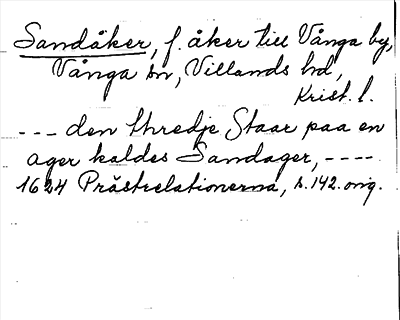 Sandåker, f. åker till Vånga by,
Vånga sn, Villands hd,
Krist. l.
--- den thredje Staar paa en
ager kaldes Sandager, ----
1624 Prästrelationerna, s. 142. orig.